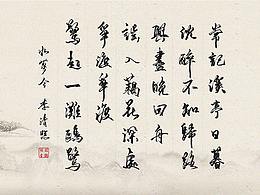 常記溪亭日暮
沈醉不知歸路
興盡晚回舟
誤入藕花深處
爭渡爭渡
驚起一灘鷗鷺
如夢令 李清照